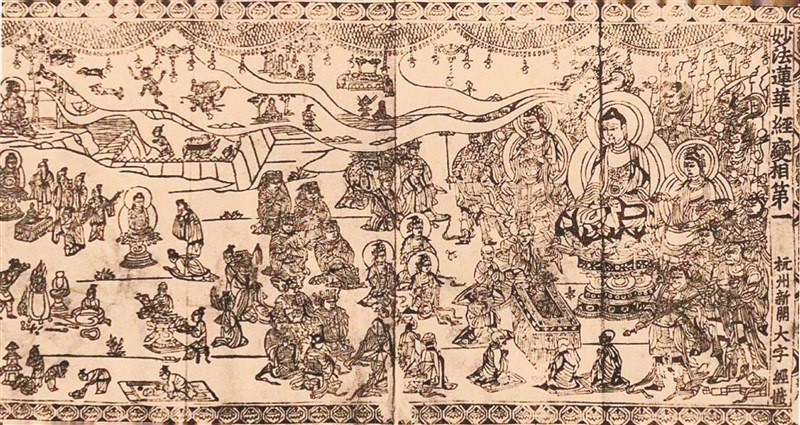 妙法蓮華經變相第一
杭州新開大字經